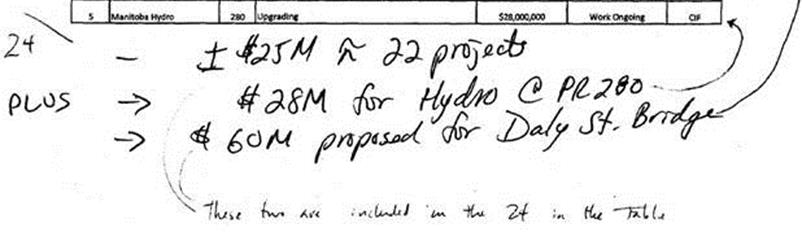 5 Manitoba Hydro 280 Upgrading $28,000,000 Work Ongoing CIF
24 - ± $25M ≈ 22 projects
PLUS → $28M for Hydro @ PR280
→ $60M proposed for Daly St. Bridge
These two are included in the 24 in the Table